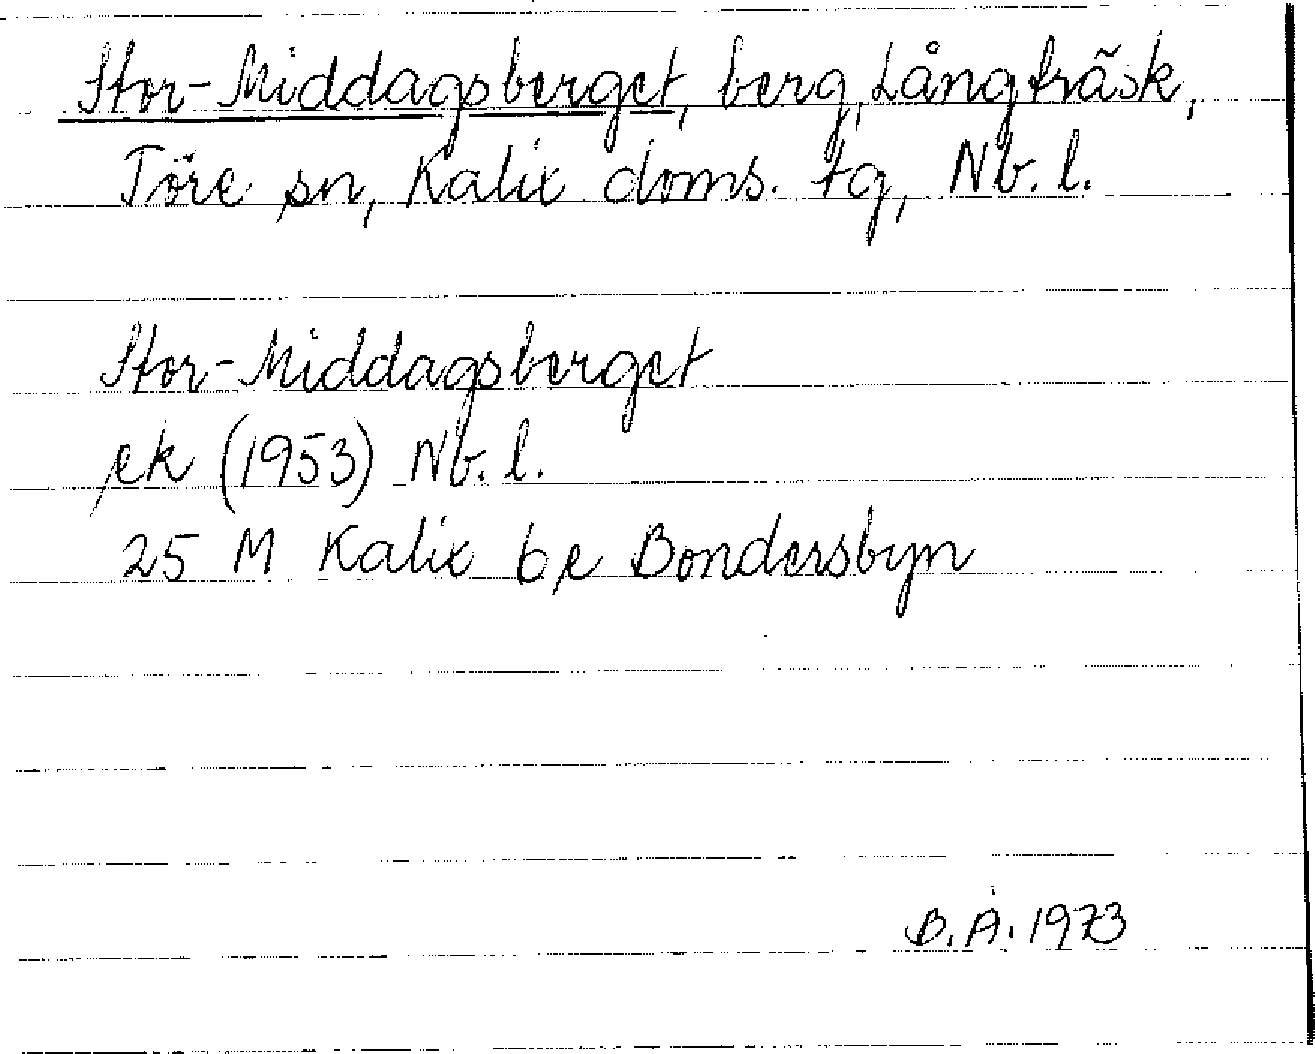 Stor-Middagsberget, berg, Långträsk,
Töre sn, Kalix doms. tg, Nb. l.
Stor-Middagsberget
ek (1953) Nb. l.
25 M Kalix 6 e Bondersbyn
B. Å. 1973